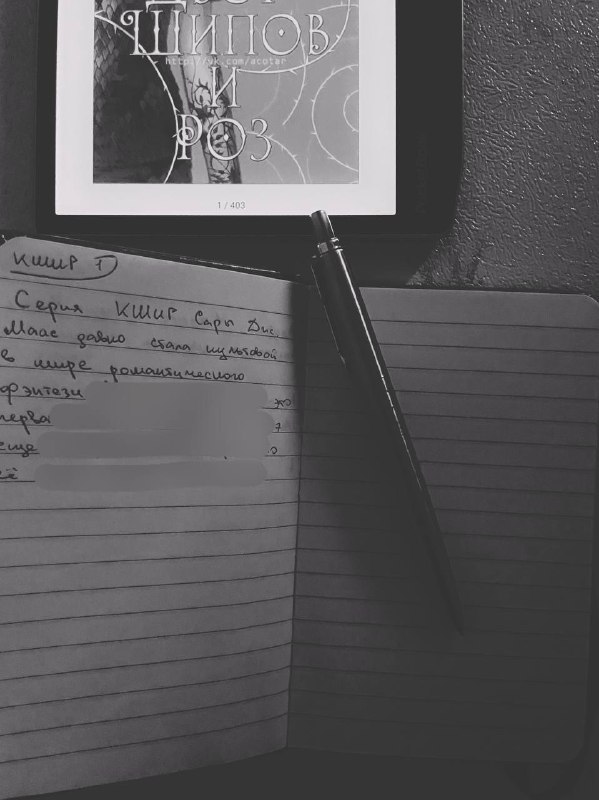 ШИПОВ
http://vk.com/acotar
И
РОЗ
1 / 403
КШИР 1
Серия КШИР Сары Дж.
Маас давно стала культовой
в мире романтического
фэнтези
перва
еще
её